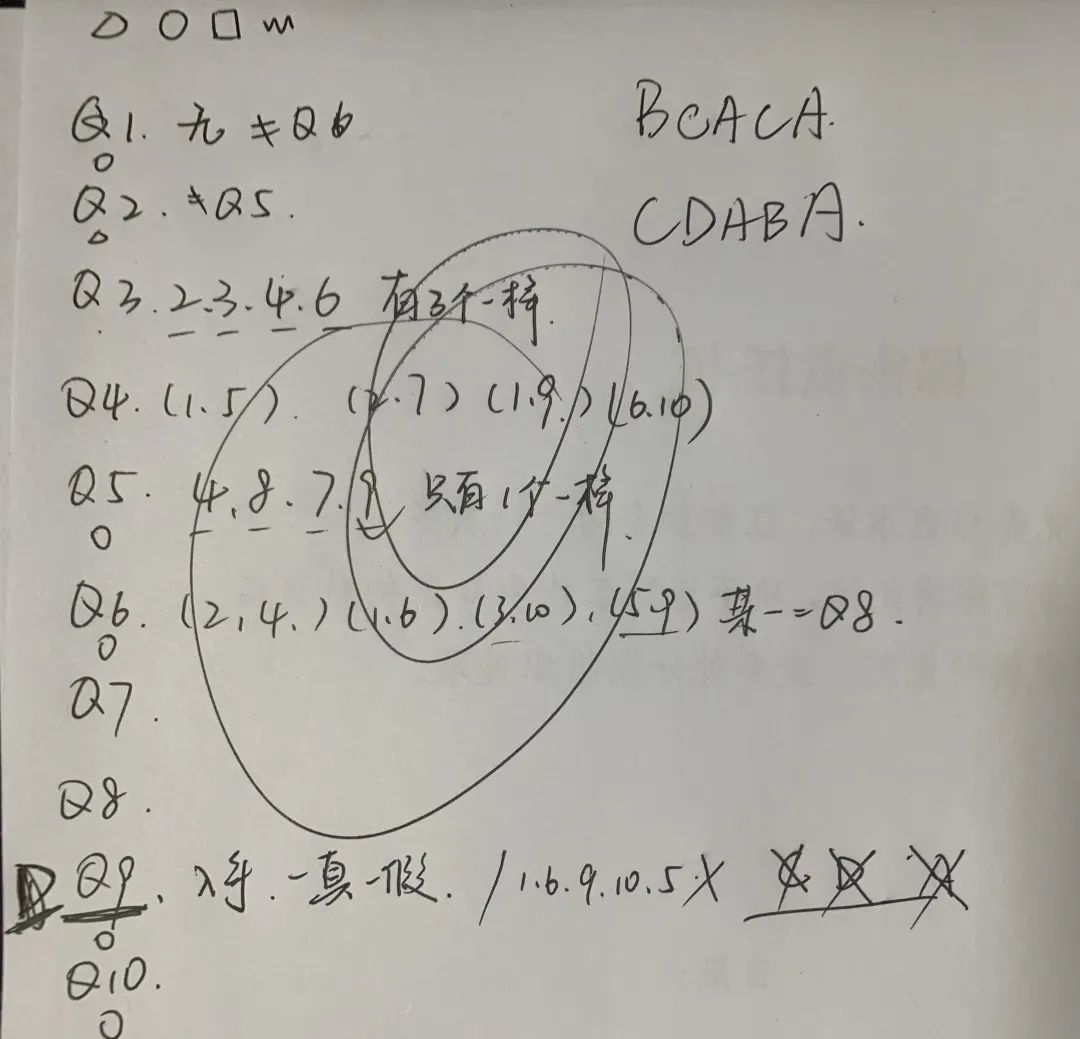 Q1. 无≠Q6
BCACA.
Q2. ≠Q5.
CDABA.
Q3. 2.3.4.6 有3个一样.
Q4. (1.5). (2.7) (1.9.) (6.10)
Q5. 4.8.7.9 只有1个一样.
Q6. (2,4.) (1.6). (3.10). (5.9) 某一=Q8.
Q7.
Q8.
Q9. 入手. 一真一假. / 1.6.9.10.5 X C D A
Q10.